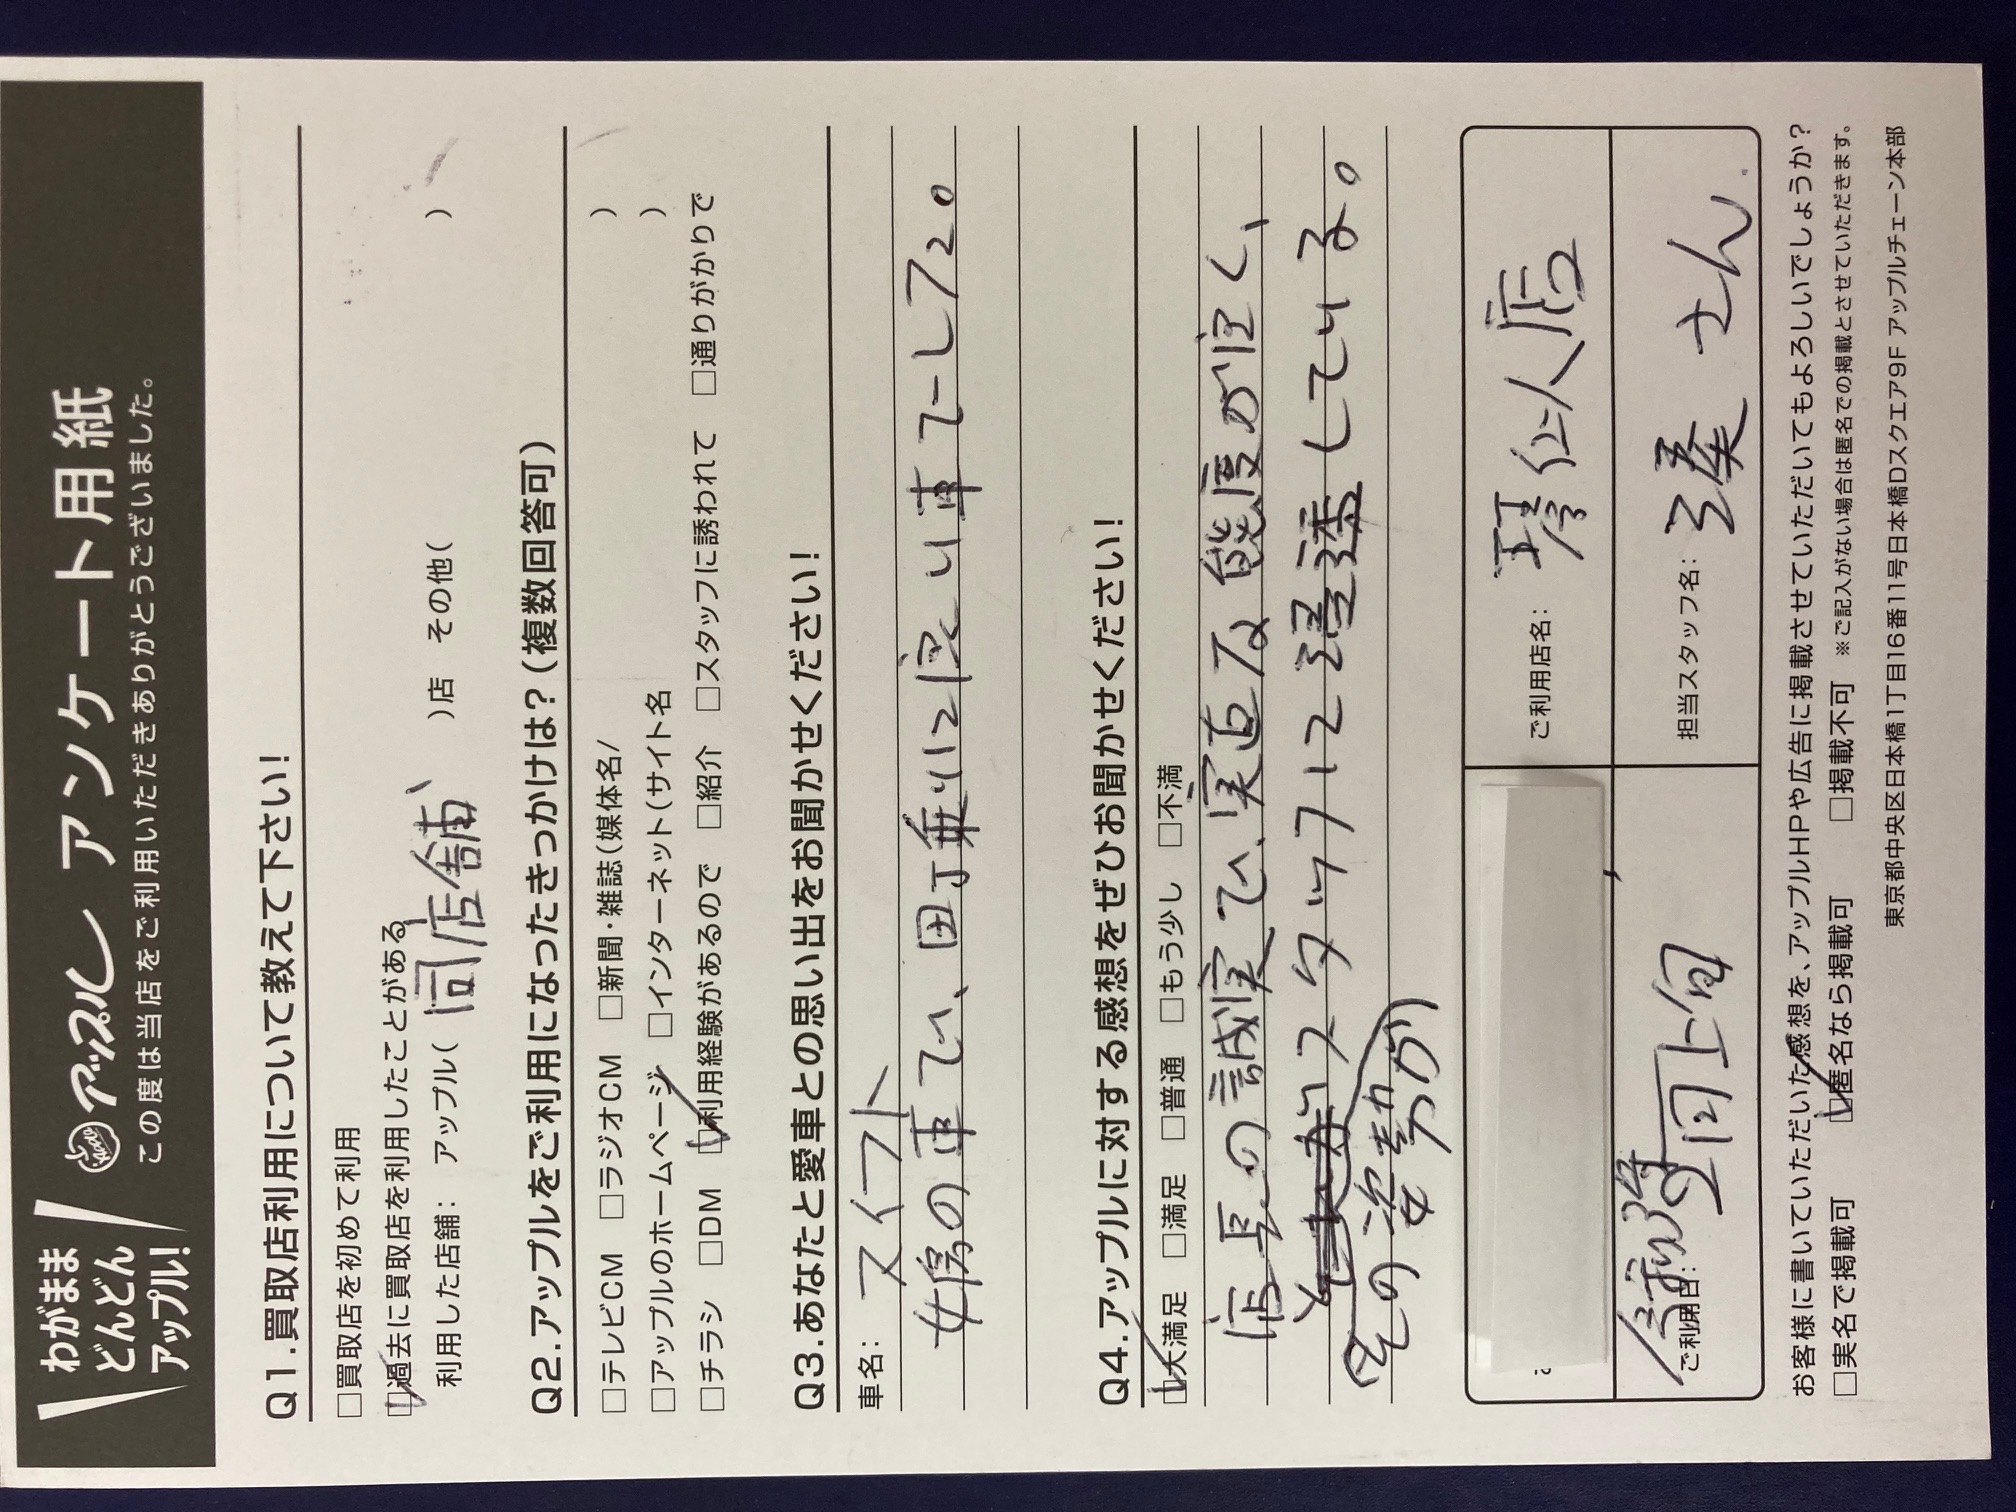 わがまま
どんどん
アップル!
アップル アンケート用紙
この度は当店をご利用いただきありがとうございました。
Q1.買取店利用について教えて下さい!
□買取店を初めて利用
□過去に買取店を利用したことがある
利用した店舗: アップル( 同店舗 )店 その他( )
Q2.アップルをご利用になったきっかけは?(複数回答可)
□テレビCM □ラジオCM □新聞・雑誌(媒体名/ )
□アップルのホームページ □インターネット(サイト名 )
□チラシ □DM □利用経験があるので □紹介 □スタッフに誘われて □通りがかりで
Q3.あなたと愛車との思い出をお聞かせください!
車名: スイフト
女房の車で、町乗りに良い車でした。
Q4.アップルに対する感想をぜひお聞かせください!
□大満足 □満足 □普通 □もう少し □不満
店長の誠実で、実直な態度が良く、
その姿勢が
スタッフに浸透している。
ご利用店名: 琴似店
ご利用日: 令和3年 上旬
担当スタッフ名: 湊さん
お客様に書いていただいた感想を、アップルHPや広告に掲載させていただいてもよろしいでしょうか?
□実名で掲載可 □匿名なら掲載可 □掲載不可 ※ご記入がない場合は匿名での掲載とさせていただきます。
東京都中央区日本橋1丁目16番11号日本橋Dスクエア9F アップルチェーン本部